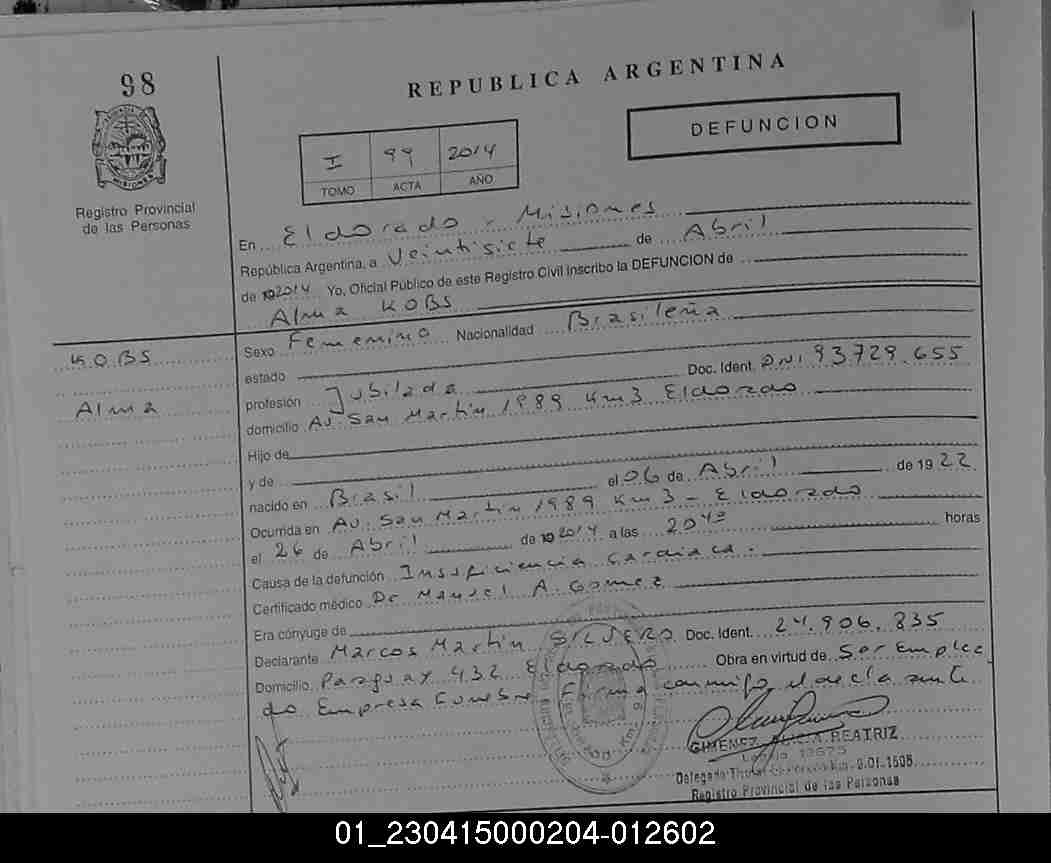 98
REPUBLICA ARGENTINA
DEFUNCION
I 99 2014
TOMO ACTA AÑO
Registro Provincial
de las Personas
En Eldorado - Misiones
República Argentina, a Veintisiete de Abril
de 19 2014 Yo, Oficial Público de este Registro Civil inscribo la DEFUNCION de
Alma KOBS
KOBS
Alma
Sexo Femenino Nacionalidad Brasileña
estado
profesión Jubilada Doc. Ident. DNI 93.729.655
domicilio Av. San Martin 1989 Km 3 Eldorado
Hijo de
y de
nacido en Brasil el 06 de Abril de 19 22
Ocurrida en Av. San Martin 1989 Km 3 - Eldorado
el 26 de Abril de 19 2014 a las 20 40 horas
Causa de la defunción Insuficiencia Cardiaca.
Certificado médico Dr Manuel A. Gomez
Era cónyuge de
Declarante Marcos Martin SILVERO Doc. Ident. 24.906.835
Domicilio Paraguay 432 Eldorado Obra en virtud de Ser Emplea
do Empresa Funebre Firma conmigo el declarante
GIMENEZ ALICIA BEATRIZ
Delegada Titular
Registro Provincial de las Personas
01_230415000204-012602